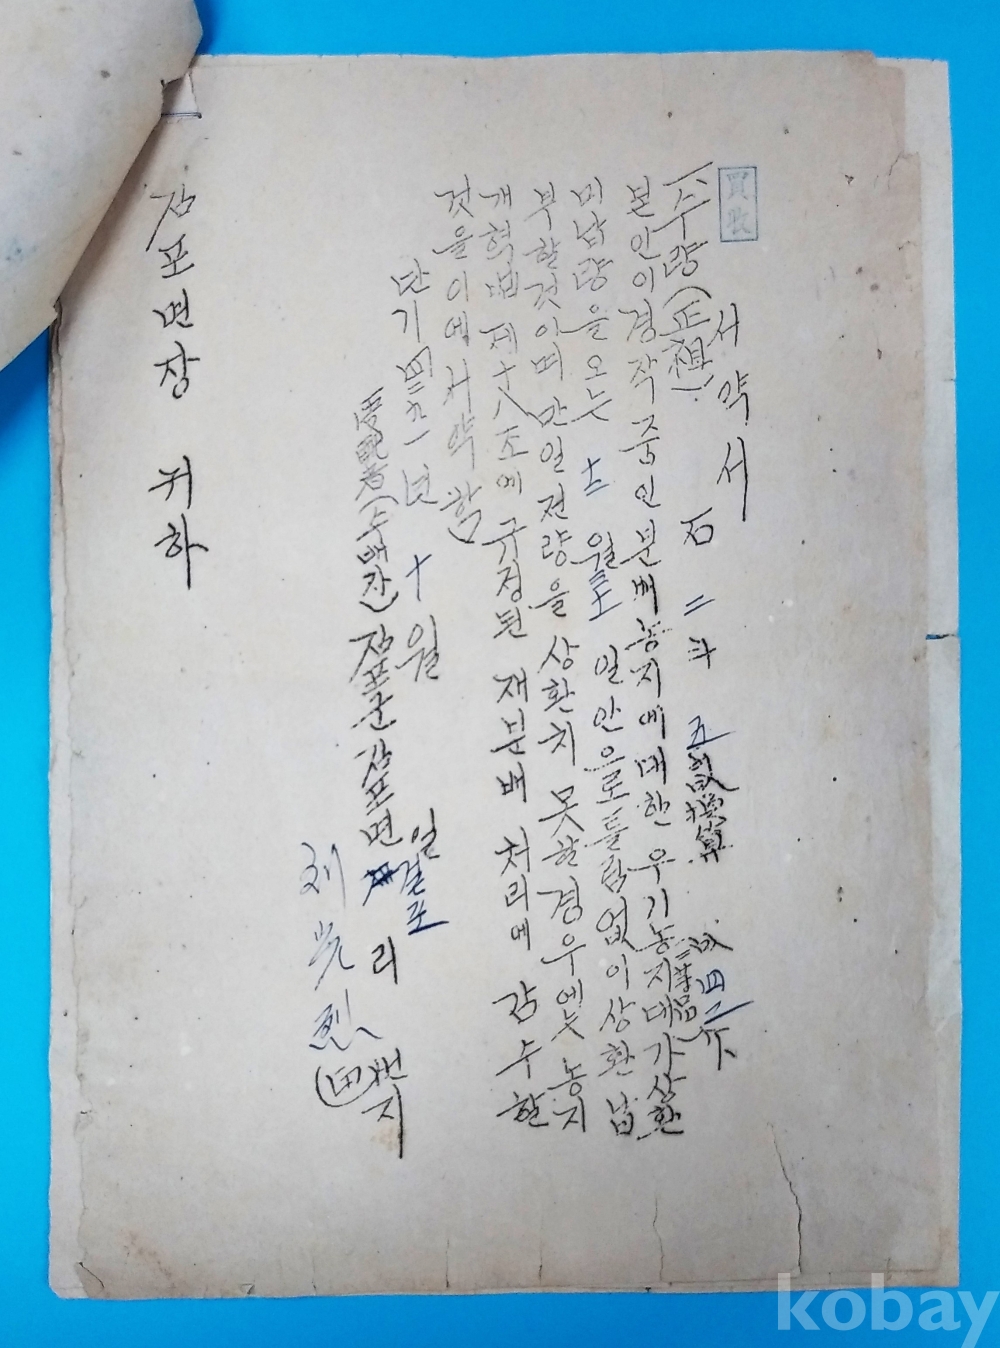 買收
서약서
一、수량(正租) 石 二斗 五 叺換算 叺 四二斤
二等品
본인이경작중인분배농지에대한우기농지대가상환
미납량을오는 十二 월 三十 일안으로틀림없이상환납
부할것이며만일전량을상환치못할경우에는농지
개혁법제十八조에규정된재분배처리에감수할
것을이에서약함
단기四二九一년 十월 일
受配者(수배자) 김포군김포면 걸포리 번지
(印)
김포면장 귀하
kobay